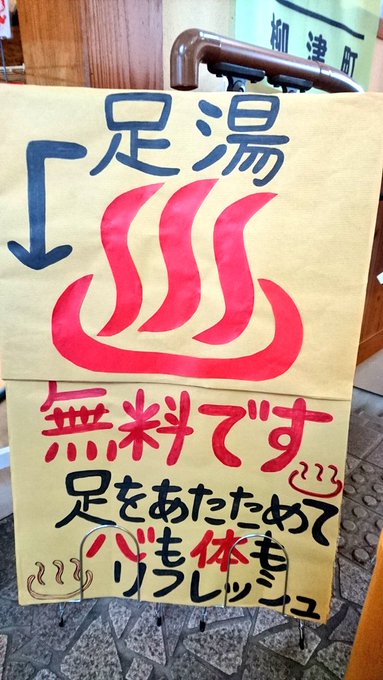 柳津町
足湯
無料です
足をあたためて
心も体も
リフレッシュ